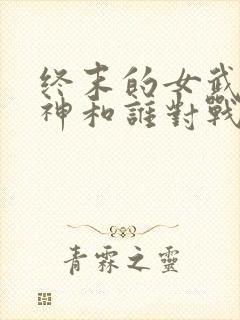 终末的女武
神和誰對戰
青霖之靈